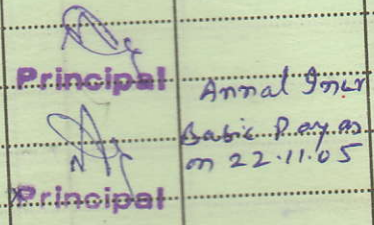 Principal
Annal Incr
Basic Pay as
on 22.11.05
Principal